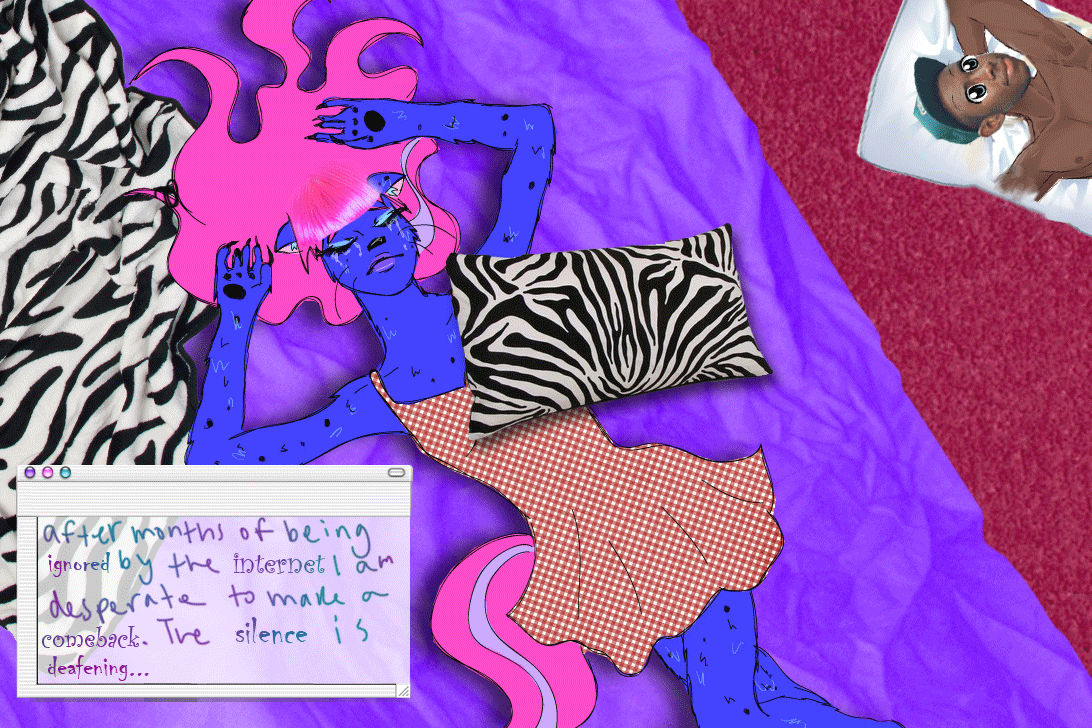 after months of being
ignored by the internet I am
desperate to make a
comeback. The silence is
deafening...